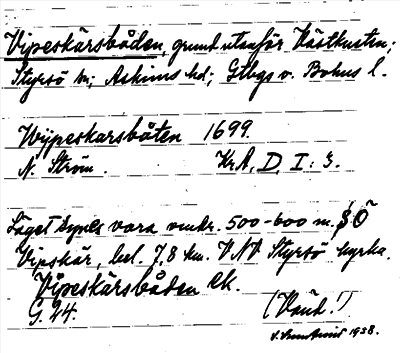 Vipeskärsbåden, grund utanför Västkusten;
Styrsö sn; Askims hd; Gtbgs o. Bohus l.
Wijpeskarsbåten 1699.
N. Ström. Kr.A, D, I: 3.
Läget synes vara omkr. 500-600 m. S Ö
Vipskär, bel. 7,8 km. VNV Styrsö kyrka.
Vipeskärsbåden ek.
G. 24. (Känd!)
1938.